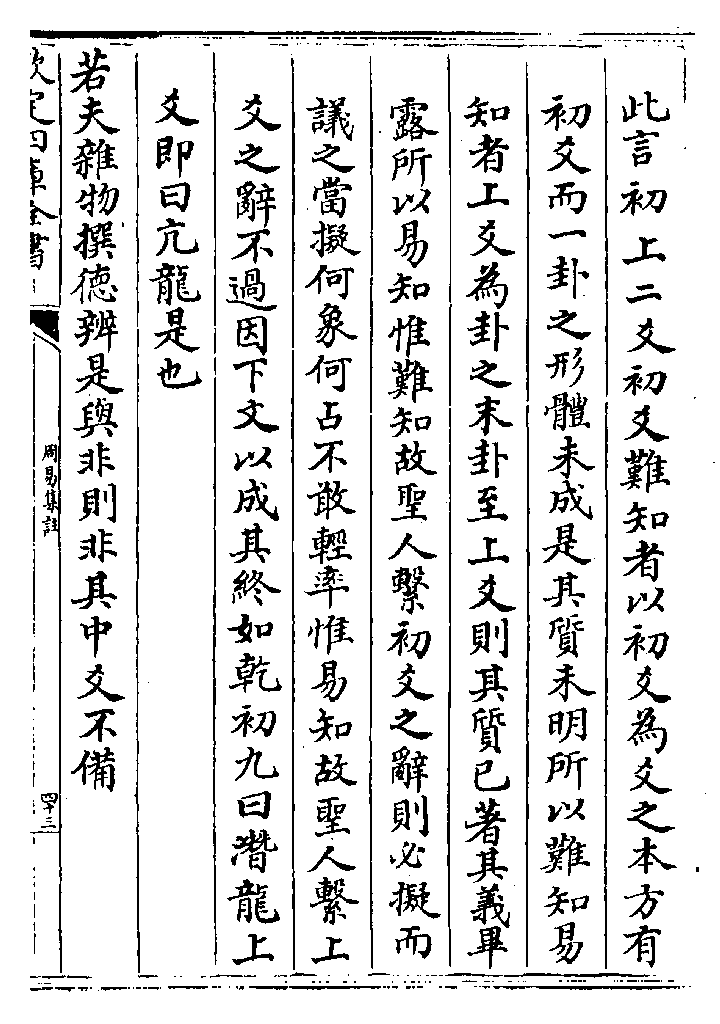 此言初上二爻初爻難知者以初爻為爻之本方有
初爻而一卦之形體未成是其質未明所以難知易
知者上爻為卦之末卦至上爻則其質已著其義畢
露所以易知惟難知故聖人繫初爻之辭則必擬而
議之當擬何象何占不敢輕率惟易知故聖人繫上
爻之辭不過因下文以成其終如乾初九曰潛龍上
爻即曰亢龍是也
若夫雜物撰德辨是與非則非其中爻不備
欽定四庫全書
周易集註
四十三